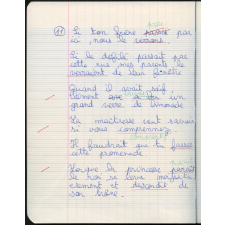 passe
(11) Si ton frère passait par
ici, nous le verrons.
Si le défilé passait par
cette rue mes parents le
verraient de leur fenêtre
Quand il avait soif
Clément un
grand verre de limonade
La maîtresse veut savoir
si vous comprennez.
Il faudrait que tu fasses
cette promenade.
Lorsque la princesse paraît
le roi se leva
et descendit de
son trône.